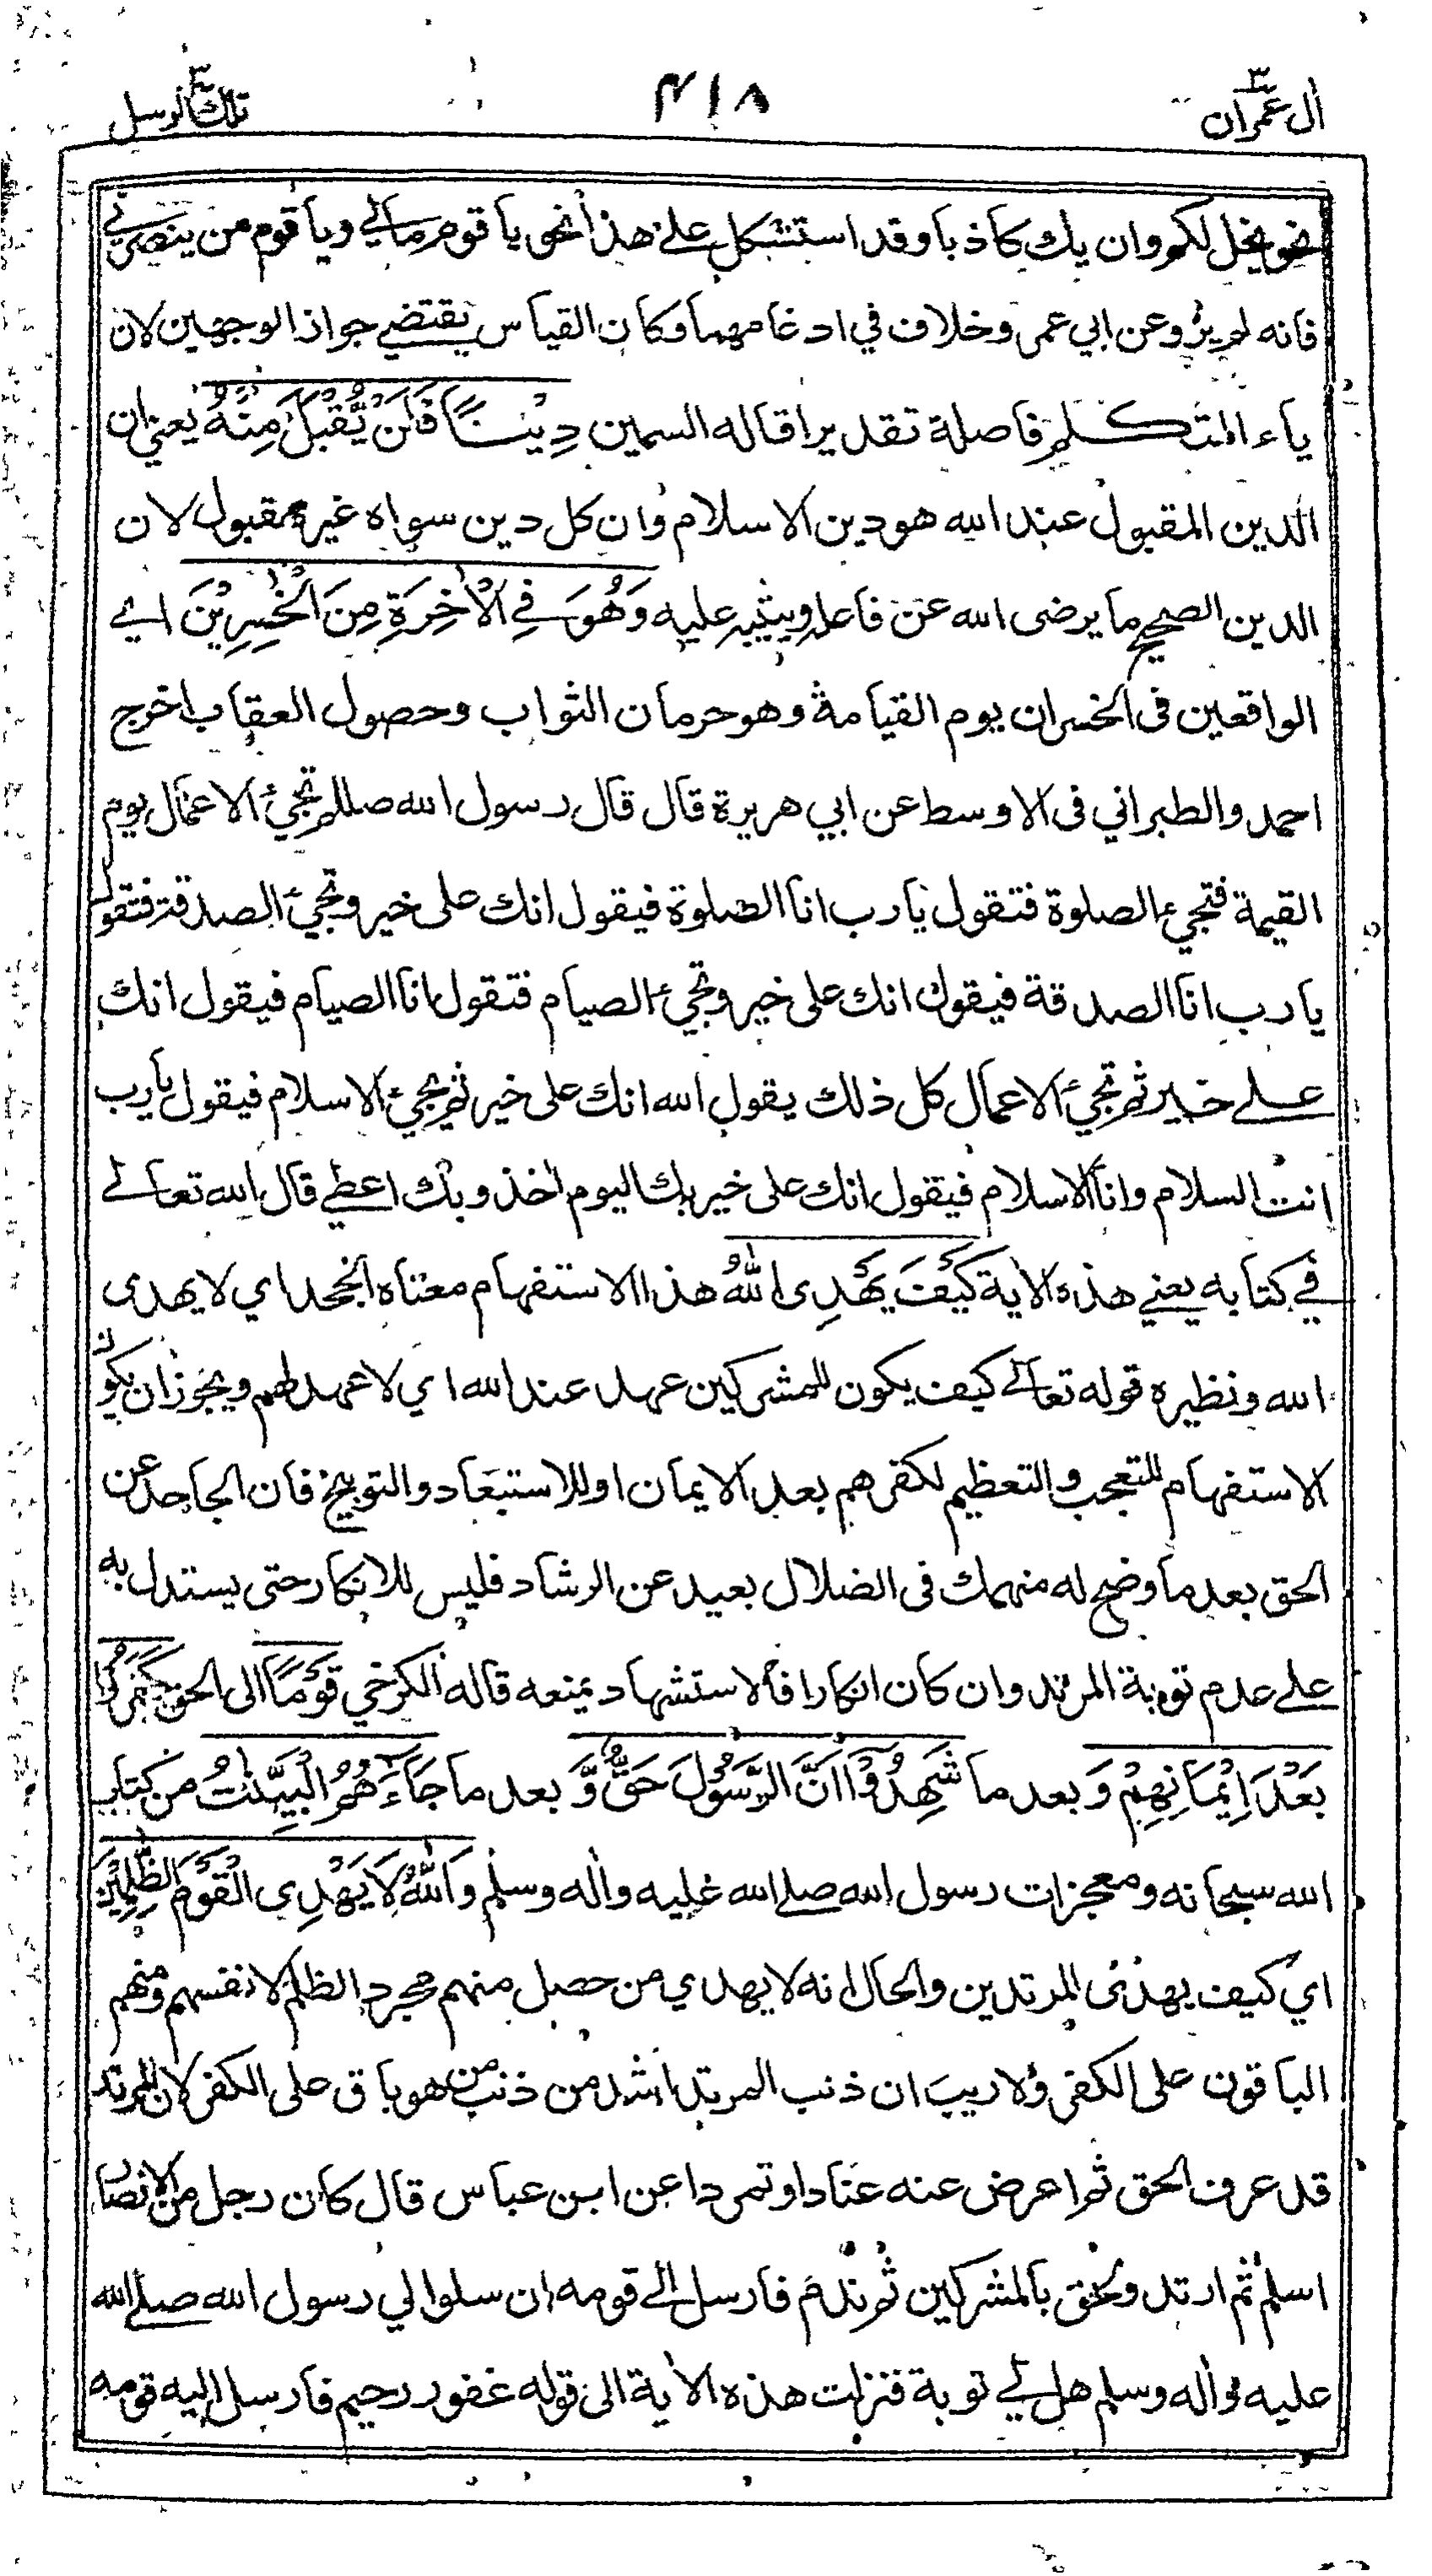 اٰل عمران ٣
٤١٨
تلك الرسل ٣
نحو يخل لكم وان يك كاذبا وقد استشكل على هذا نحو يا قوم مالي ويا قوم من ينصرني
فانه لم يرو عن ابي عمرو خلاف في ادغامهما وكان القياس يقتضي جواز الوجهين لان
ياء المتكلم فاصلة تقديرا قاله السمين دِيْنًا فَلَنْ يُّقْبَلَ مِنْهُ يعني ان
الدين المقبول عند الله هو دين الاسلام وان كل دين سواه غير مقبول لان
الدين الصحيح ما يرضى الله عن فاعله ويثيبه عليه وَهُوَ فِي الْاٰخِرَةِ مِنَ الْخٰسِرِيْنَ اي
الواقعين فى الخسران يوم القيامة وهو حرمان الثواب وحصول العقاب اخرج
احمد والطبراني فى الاوسط عن ابي هريرة قال قال رسول الله صللم تجيء الاعمال يوم
القيمة فتجيء الصلوة فتقول يا رب انا الصلوة فيقول انك على خير وتجيء الصدقة فتقول
يا رب انا الصدقة فيقول انك على خير وتجيء الصيام فتقول انا الصيام فيقول انك
على خير ثم تجيء الاعمال كل ذلك يقول الله انك على خير ثم يجيء الاسلام فيقول يا رب
انت السلام وانا الاسلام فيقول انك على خير بك اليوم اخذ وبك اعطي قال الله تعالى
في كتابه يعني هذه الاية كَيْفَ يَهْدِى اللّٰهُ هذا الاستفهام معناه الجحد اي لا يهدى
الله ونظيره قوله تعالى كيف يكون للمشركين عهد عند الله اي لا عهد لهم ويجوز ان يكون
الاستفهام للتعجب والتعظيم لكفرهم بعد الايمان او للاستبعاد والتوبيخ فان الجاحد عن
الحق بعد ما وضح له منهمك فى الضلال بعيد عن الرشاد فليس للانكار حتى يستدل به
على عدم توبة المرتد وان كان انكارا فالاستشهاد يمنعه قاله الكرخي قَوْمًا الى الحق كَفَرُوْا
بَعْدَ اِيْمَانِهِمْ وَ بعد ما شَهِدُوْٓا اَنَّ الرَّسُوْلَ حَقٌّ وَّ بعد ما جَآءَهُمُ الْبَيِّنٰتُ من كتاب
الله سبحانه ومعجزات رسول الله صلى الله عليه واٰله وسلم وَاللّٰهُ لَا يَهْدِى الْقَوْمَ الظّٰلِمِيْنَ
اي كيف يهدى المرتدين والحال انه لا يهدي من حصل منهم مجرد الظلم لانفسهم ومنهم
الباقون على الكفر ولا ريب ان ذنب المرتد اشد من ذنب من هو باق على الكفر لان المرتد
قد عرف الحق ثم اعرض عنه عنادا وتمردا عن ابن عباس قال كان رجل من الانصار
اسلم ثم ارتد ولحق بالمشركين ثم ندم فارسل الى قومه ان سلوا لي رسول الله صلى الله
عليه واٰله وسلم هل لي توبة فنزلت هذه الاٰية الى قوله غفور رحيم فارسل اليه قومه